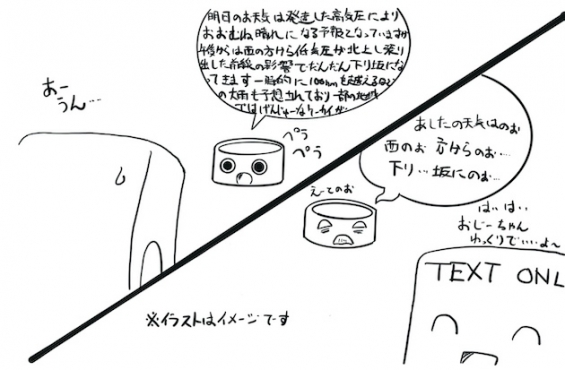 明日のお天気は発達した高気圧により
おおむね晴れになる予報となっていますが
午後からは西の方から低気圧が北上し張り
出した前線の影響でだんだん下り坂にな
ってきます一時的に100mmを越えるなど
の大雨も予想されており一部の地域
では
あー
うん…
ぺラ
ぺラ
あしたの天気はのお
西のお 方からのお…
下り…坂にのお…
えーてのお
はい…はい…
おじーちゃん
ゆっくりでいいよ〜
TEXT ONL
※イラストはイメージです